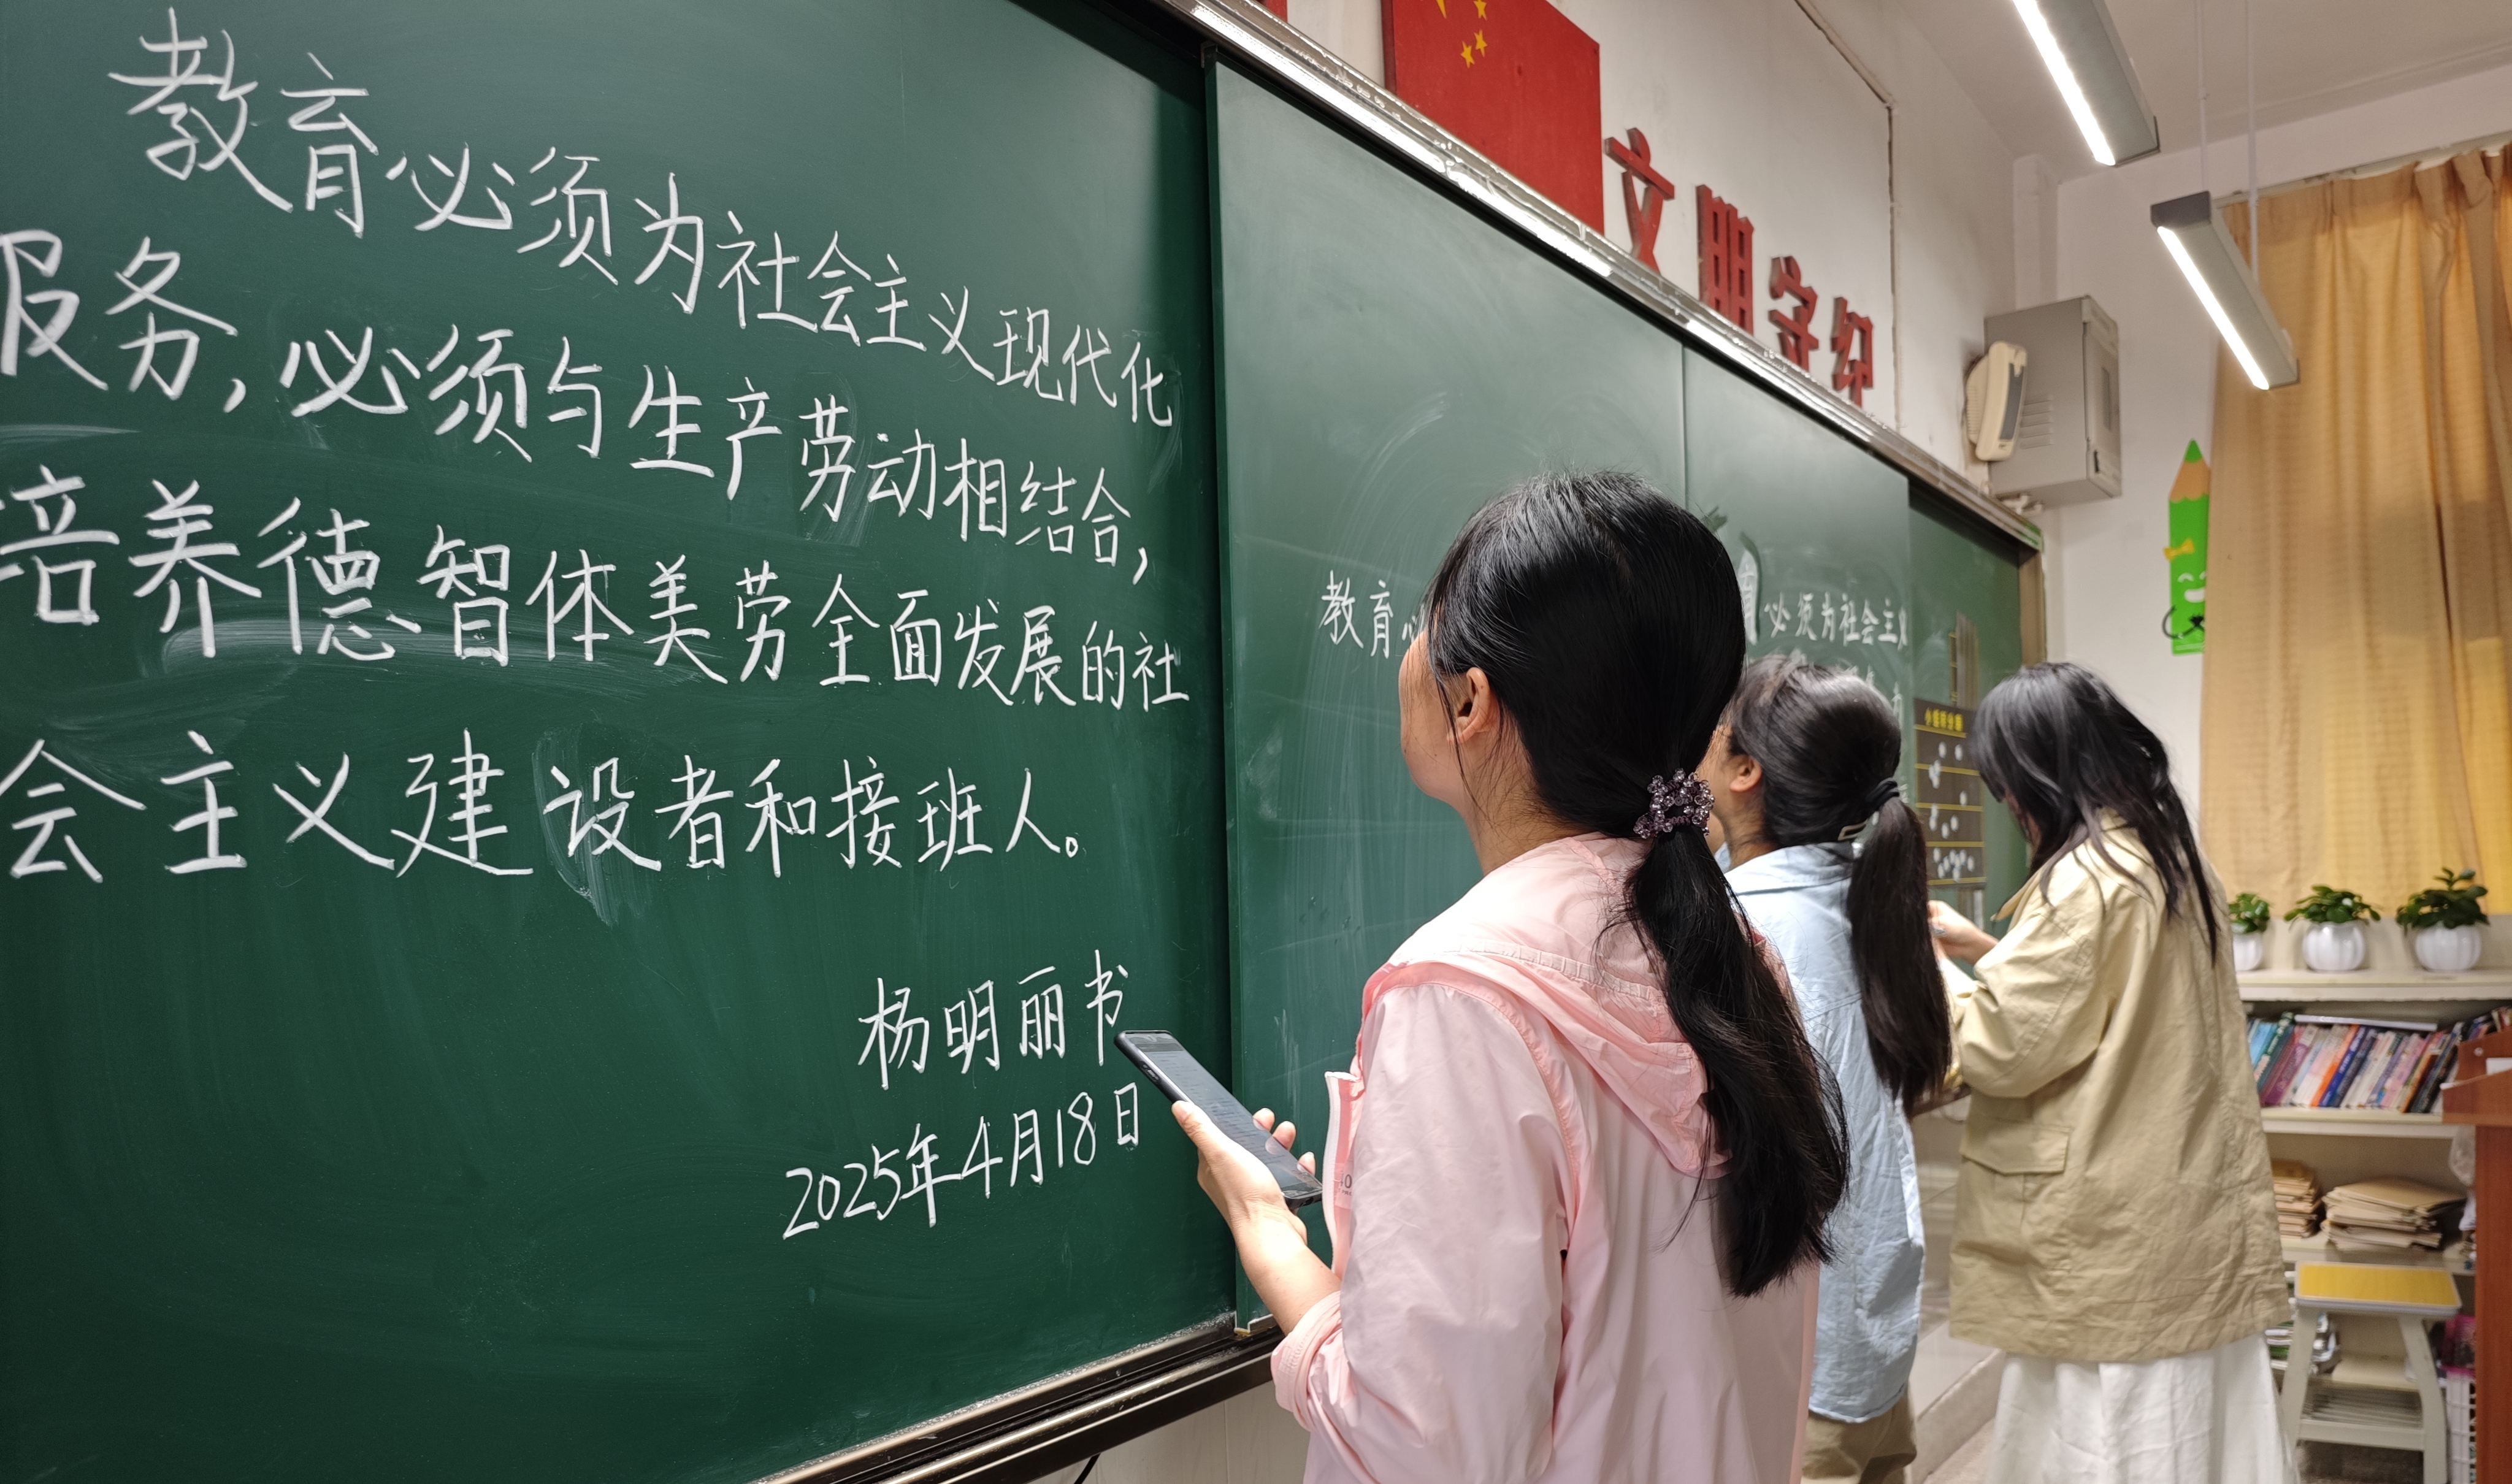 教育必须为社会主义现代化
服务,必须与生产劳动相结合,
培养德智体美劳全面发展的社
会主义建设者和接班人。
杨明丽书
2025年4月18日
文明守纪
教育
必须为社会主义